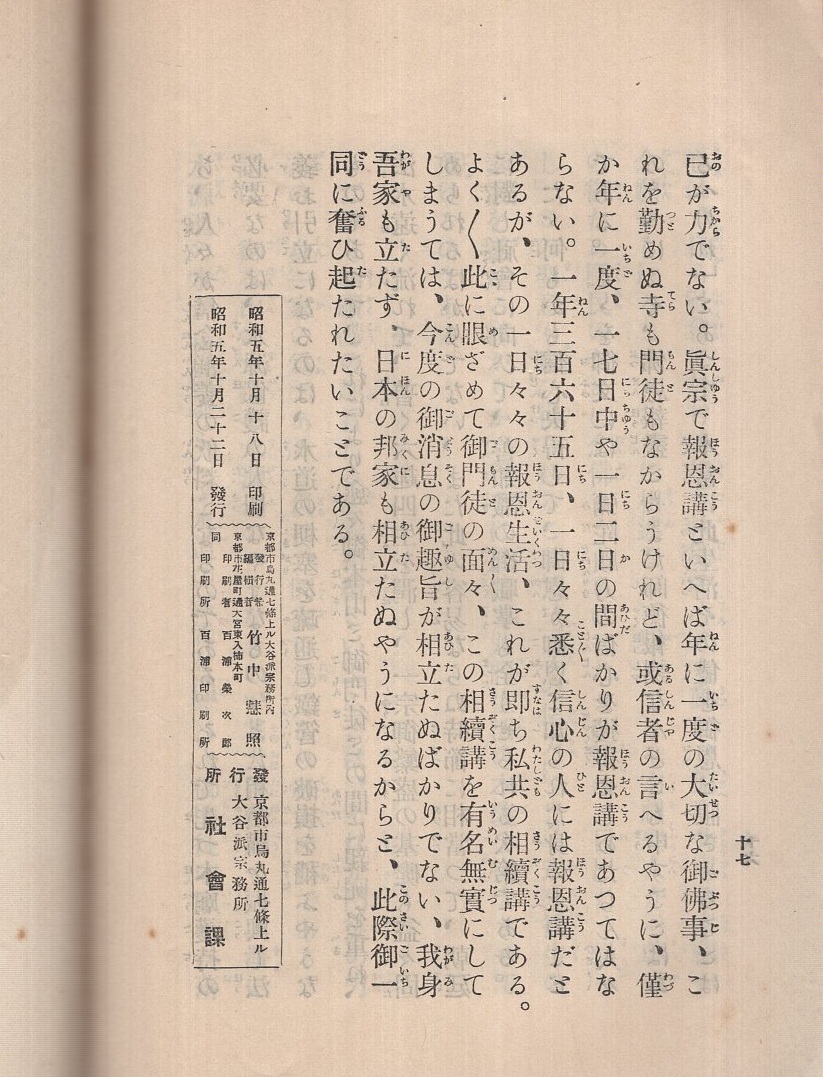 己が力でない。眞宗で報恩講といへば年に一度の大切な御佛事、こ
れを勤めぬ寺も門徒もなからうけれど、或信者の言へるやうに、僅
か年に一度、一七日中や一日二日の間ばかりが報恩講であつてはな
らない。一年三百六十五日、一日々々悉く信心の人には報恩講だと
あるが、その一日々々の報恩生活、これが即ち私共の相續講である。
よく〱此に眼ざめて御門徒の面々、この相續講を有名無實にして
しまうては、今度の御消息の御趣旨が相立たぬばかりでない、我身
吾家も立たず、日本の邦家も相立たぬやうになるからと、此際御一
同に奮ひ起たれたいことである。
十七
昭和五年十月十八日 印刷
昭和五年十月二十二日 發行
京都市烏丸通七條上ル大谷派宗務所内
發行者 竹中 照
京都市花屋町通大宮東入柿本町
印刷者 百浦榮次郎
同 印刷所 百浦印刷所
京都市烏丸通七條上ル
大谷派宗務所
發行所 社會課